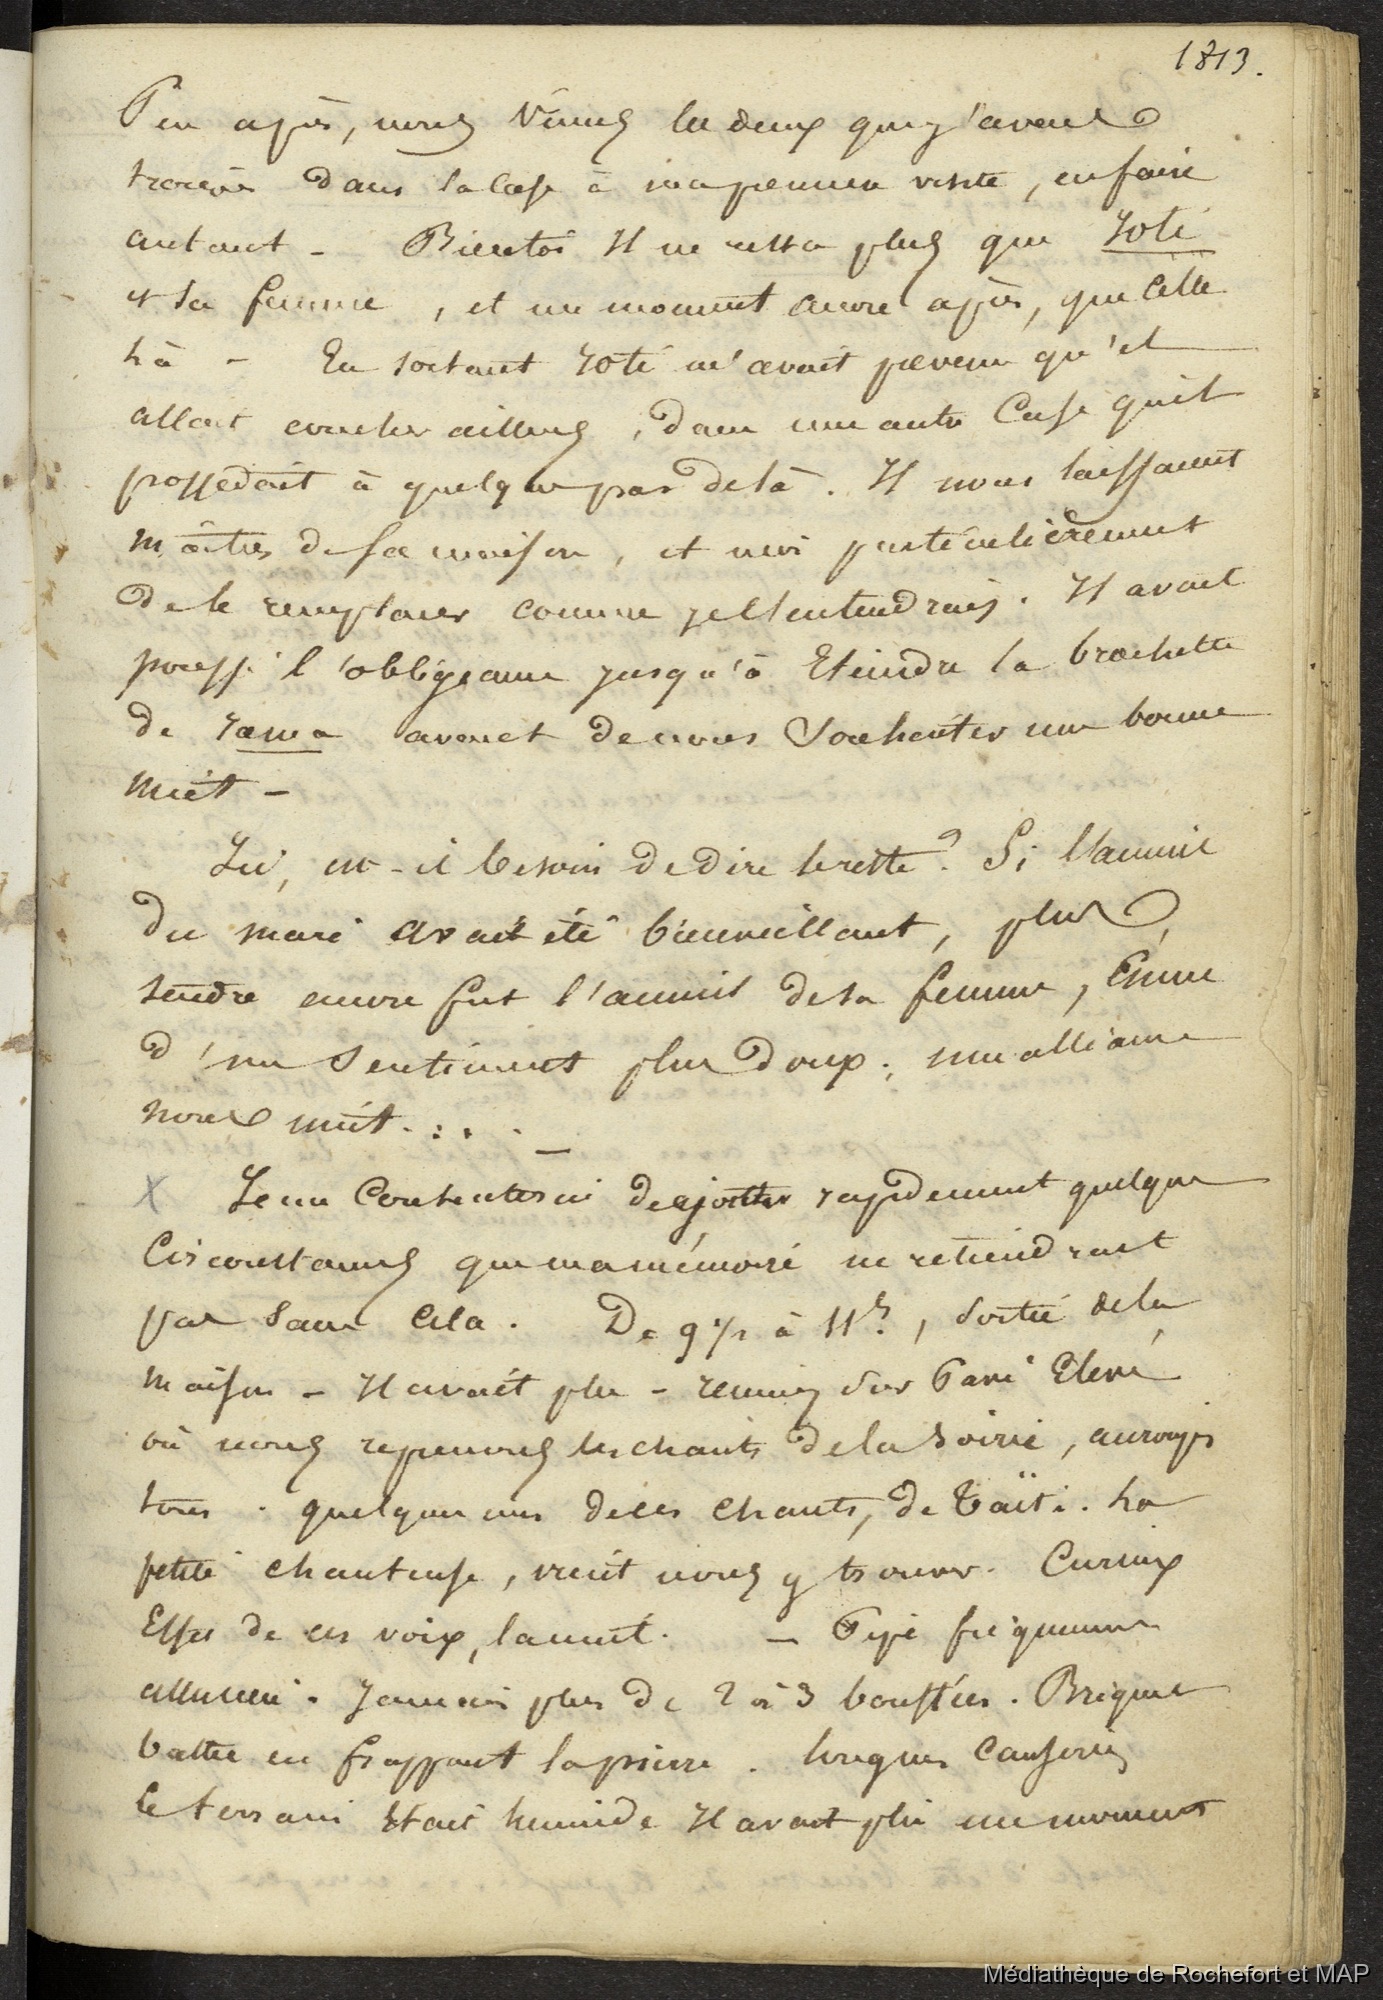 1813.
Peu après, nous vîmes les deux que j'avais
trouvés dans la case à ma première visite, en faire
autant - Bientôt Il ne resta plus que Yoti
et sa femme, et un moment encore après, que celle
là - En sortant Yoti m'avait prevenu qu'il
allait coucher ailleurs, dans une autre Case qu'il
possedait à quelques pas de là. Il nous laissait
maîtres de sa maison, et moi particulièrement
de le remplacer comme je l'entendrais. Il avait
poussé l'obligeance jusqu'à Eteindre la brochette
de rama avant de nous Souhaiter une bonne
nuit -
Ici, est-il besoin de dire le reste? Si l'amitié
du mari avait été bienveillante, plus
tendre encore fut l'amitié de sa femme, Emue
d'un Sentiment plus doux; une alliance
nous unit. . . . . -
X Je me Contenterai de ajouter rapidement quelques
Circonstances que ma mémoire ne retiendrait
pas sans Cela. De 9 1/2 à 11h, sortie de la
maison - Il avait plu - reunis sur Pavé Elevé
où nous reprenons les chants de la Soirée,
tous. quelques uns de ces chants, de Taïti. La
petite chanteuse, vient nous y trouver. Curieux
Effet de ces voix, la nuit. - Pipe fréquemment
allumée. Jamais plus de 2 à 3 bouffées. Briquet
battu en frappant la pierre. longues Causeries
le terrain Etait humide Il avait plu un moment
Médiathèque de Rochefort et MAP